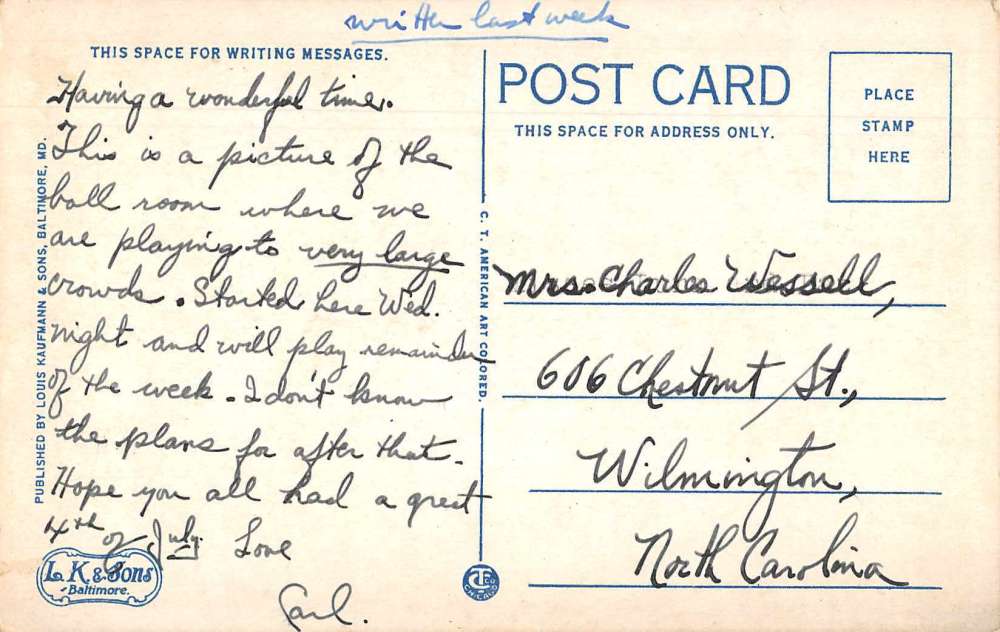 written last week
THIS SPACE FOR WRITING MESSAGES.
Having a wonderful time.
This is a picture of the
ball room where we
are playing to very large
crowds. Started here Wed.
night and will play remainder
of the week. I don't know
the plans for after that.
Hope you all had a great
4th of July. Love
Carl.
PUBLISHED BY LOUIS KAUFMANN & SONS, BALTIMORE, MD.
L. K. & Sons
Baltimore.
C. T. AMERICAN ART COLORED.
CT CO
CHICAGO
POST CARD
THIS SPACE FOR ADDRESS ONLY.
PLACE
STAMP
HERE
Mrs. Charles Wessell,
606 Chestnut St.,
Wilmington,
North Carolina